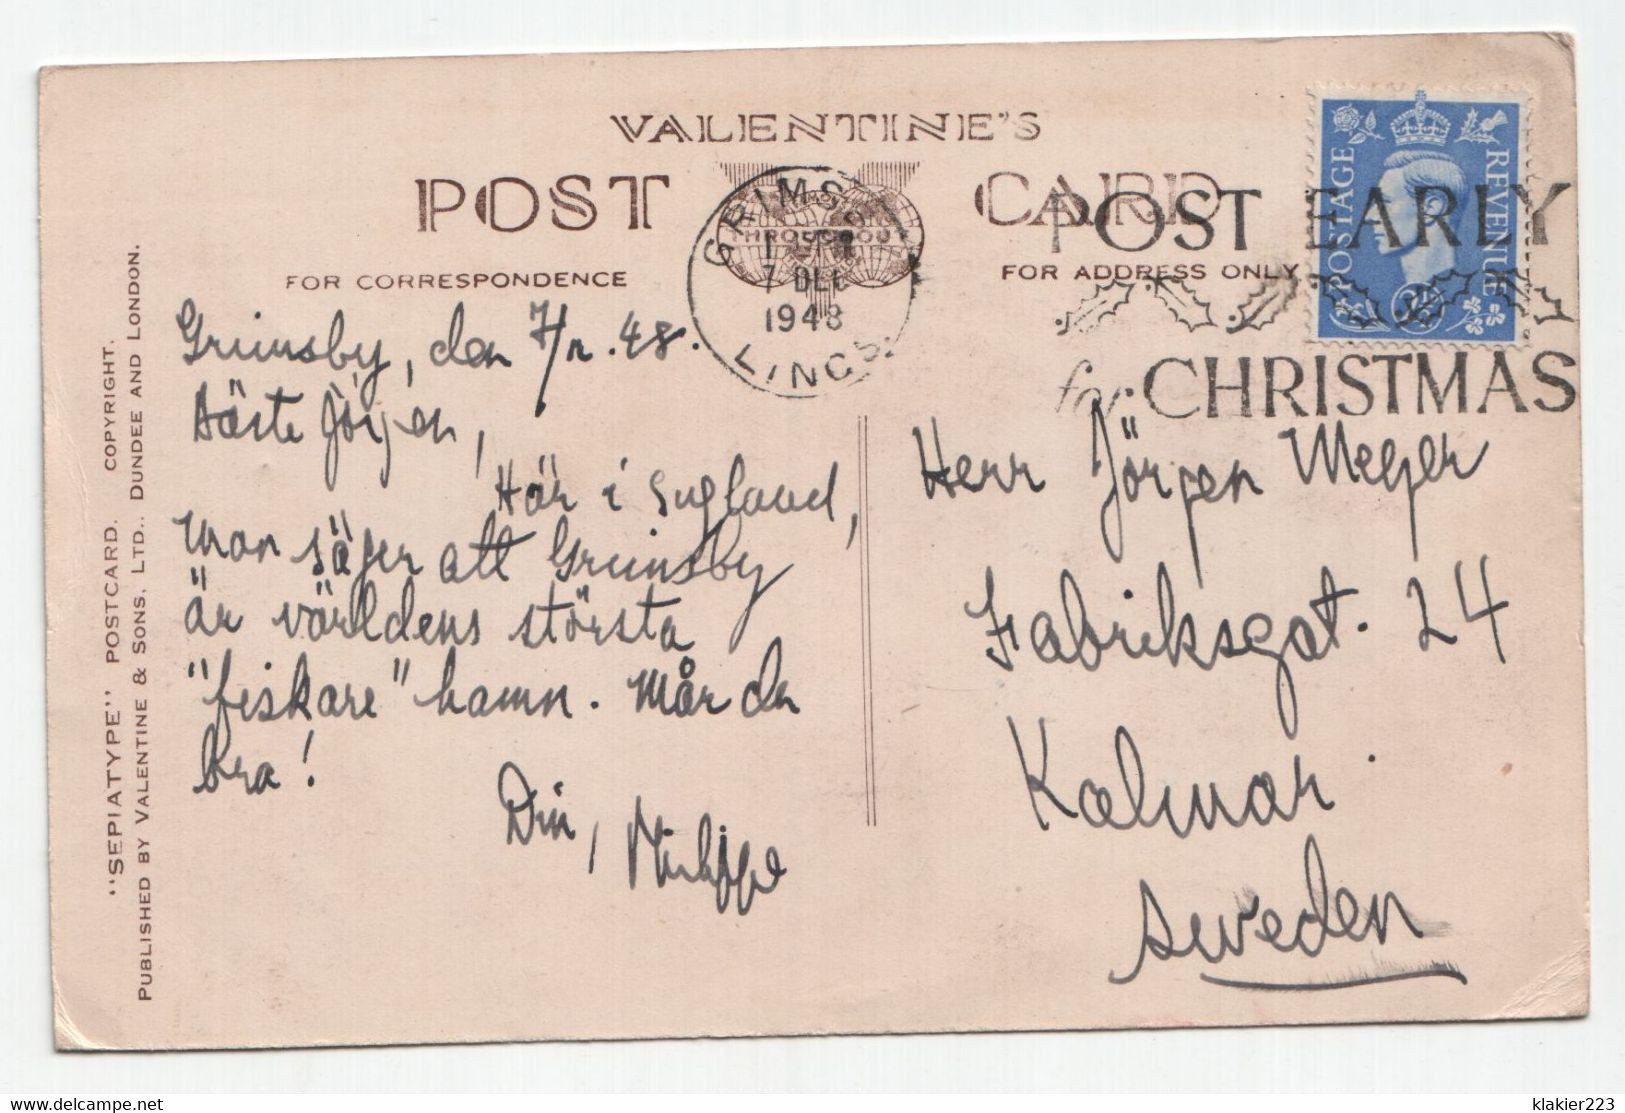 VALENTINE'S
POST CARD
FOR CORRESPONDENCE
FOR ADDRESS ONLY
GRIMSBY
7 DEC
1948
LINCS.
POST EARLY
for CHRISTMAS
POSTAGE REVENUE
"SEPIATYPE" POSTCARD. COPYRIGHT.
PUBLISHED BY VALENTINE & SONS, LTD., DUNDEE AND LONDON.
Grimsby, den 7/12.48.
Bäste Jörgen,
Här i England,
man säger att Grimsby
är världens största
"fiskare" hamn. Mår du
bra!
Din,
Philippe
Herr Jörgen Meyer
Fabriksgat. 24
Kalmar
Sweden
klakier223